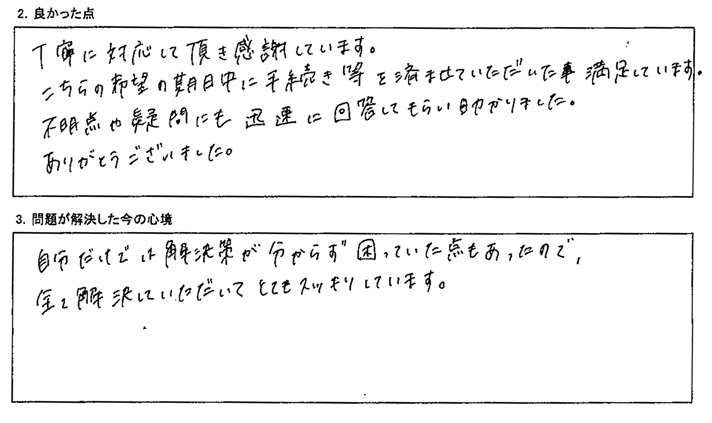 2. 良かった点
丁寧に対応して頂き感謝しています。
こちらの希望の期日中に手続き等を済ませていただいた事満足しています。
不明点や疑問にも迅速に回答してもらい助かりました。
ありがとうございました。
3. 問題が解決した今の心境
自分だけでは解決策が分からず困っていた点もあったので、
全て解決していただいてとてもスッキリしています。